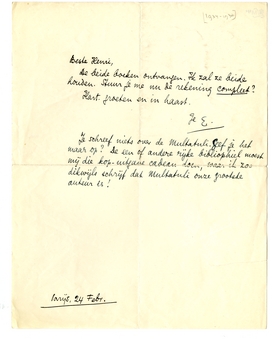 (1922-40)
Beste Henri,
De beide boeken ontvangen. Ik zal ze beide
houden. Stuur je me nu de rekening compleet?
Hart. groeten en in haast.
Je E.
Je schreef niets over de Multatuli. Geef je het
maar op? De een of andere rijke bibliophiel moest
mij die kop. uitgave cadeau doen, waar ik zoo
dikwijls schrijf dat Multatuli onze grootste
auteur is!
Parijs, 24 Febr.